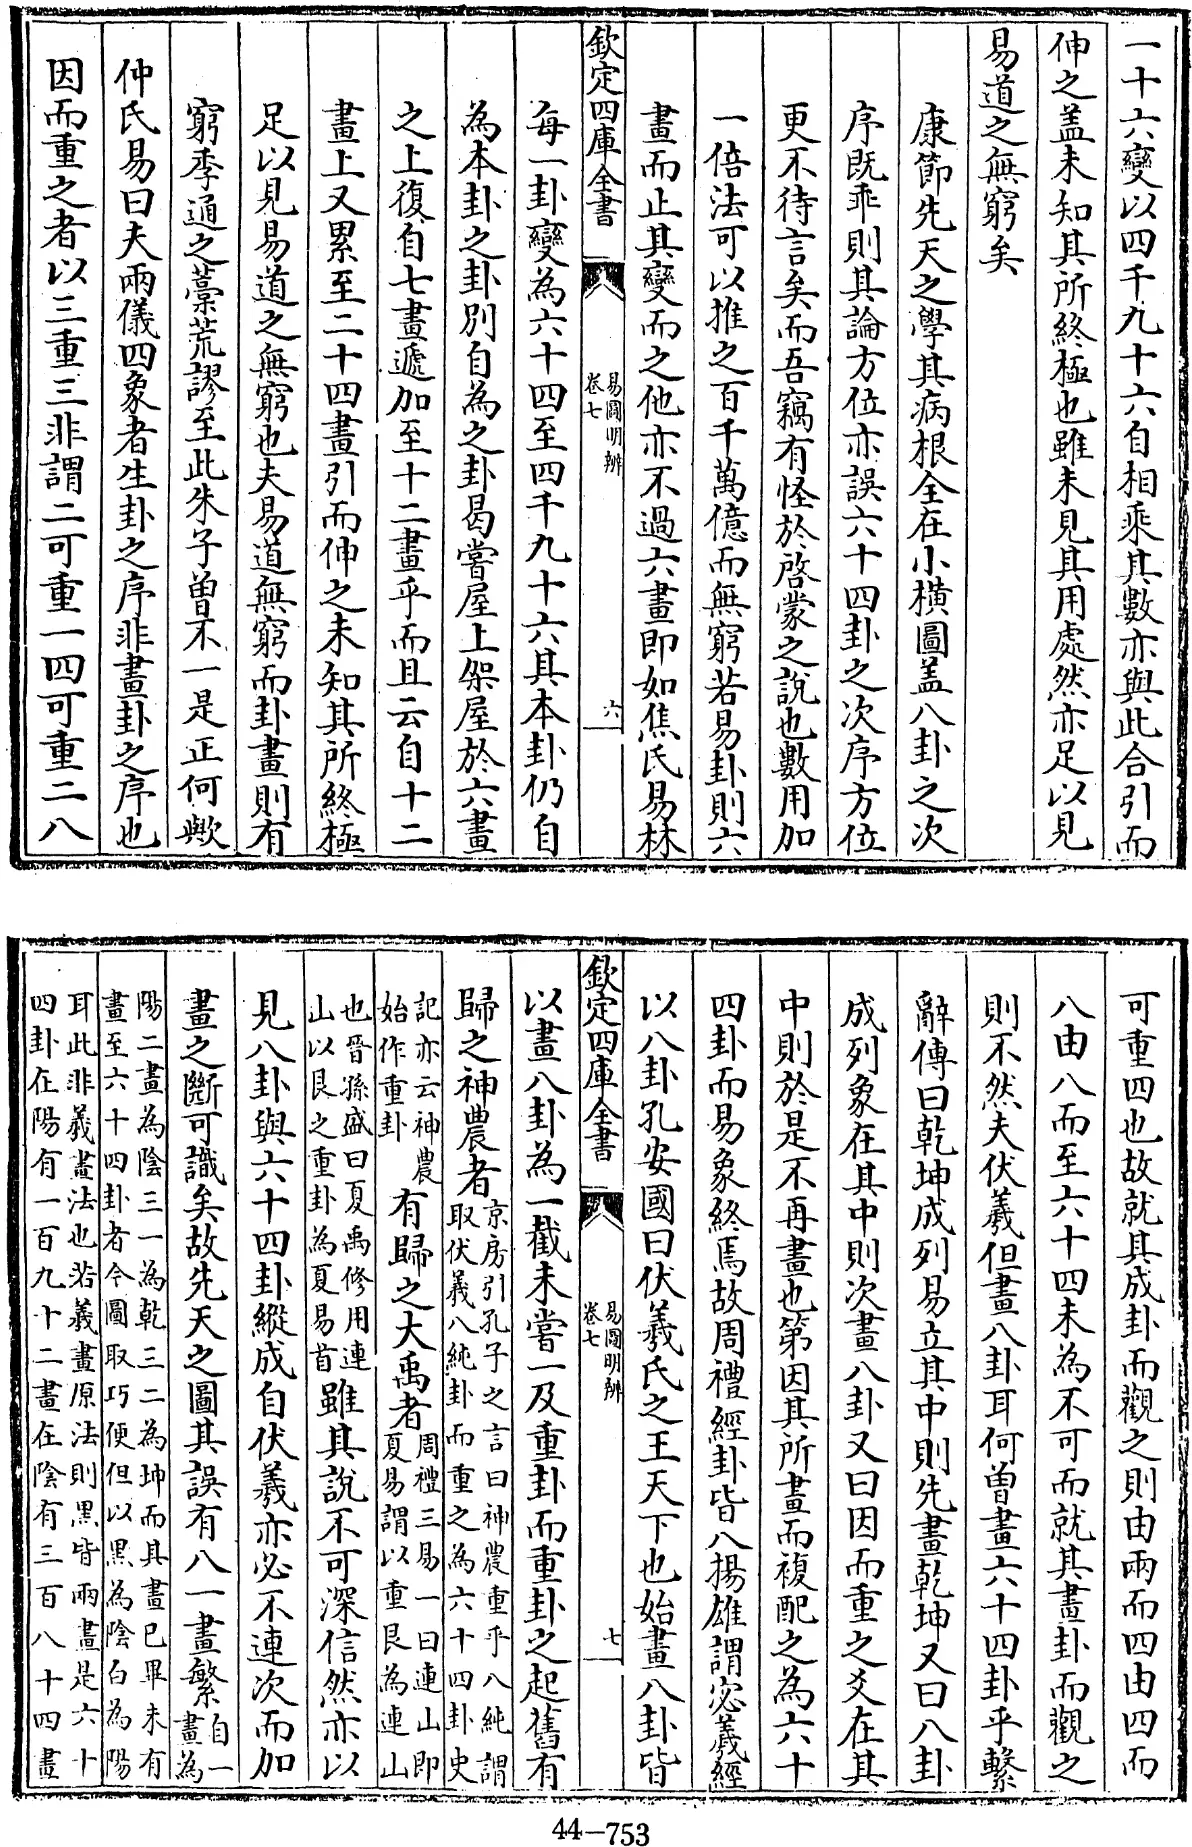 一十六變以四千九十六自相乘其數亦與此合引而
伸之盖未知其所終極也雖未見其用處然亦足以見
易道之無窮矣
康節先天之學其病根全在小橫圖盖八卦之次
序既乖則其論方位亦誤六十四卦之次序方位
更不待言矣而吾竊有怪於啓蒙之說也數用加
一倍法可以推之百千萬億而無窮若易卦則六
畫而止其變而之他亦不過六畫即如焦氏易林
欽定四庫全書
易圖明辨
卷七
六
每一卦變為六十四至四千九十六其本卦仍自
為本卦之卦別自為之卦曷嘗屋上架屋於六畫
之上復自七畫遞加至十二畫乎而且云自十二
畫上又累至二十四畫引而伸之未知其所終極
足以見易道之無窮也夫易道無窮而卦畫則有
窮季通之藁荒謬至此朱子曾不一是正何歟
仲氏易曰夫兩儀四象者生卦之序非畫卦之序也
因而重之者以三重三非謂二可重一四可重二八
可重四也故就其成卦而觀之則由兩而四由四而
八由八而至六十四未為不可而就其畫卦而觀之
則不然夫伏羲但畫八卦耳何曾畫六十四卦乎繫
辭傳曰乾坤成列易立其中則先畫乾坤又曰八卦
成列象在其中則次畫八卦又曰因而重之爻在其
中則於是不再畫也第因其所畫而複配之為六十
四卦而易象終焉故周禮經卦皆八揚雄謂宓羲經
以八卦孔安國曰伏羲氏之王天下也始畫八卦皆
欽定四庫全書
易圖明辨
卷七
七
以畫八卦為一截未嘗一及重卦而重卦之起舊有
歸之神農者京房引孔子之言曰神農重乎八純謂
取伏羲八純卦而重之為六十四卦史
記亦云神農
始作重卦有歸之大禹者周禮三易一曰連山即
夏易謂以重艮為連山
也晉孫盛曰夏禹修用連
山以艮之重卦為夏易首雖其說不可深信然亦以
見八卦與六十四卦縱成自伏羲亦必不連次而加
畫之斷可識矣故先天之圖其誤有八一畫繁自一
畫為
陽二畫為陰三一為乾三二為坤而其畫已畢未有
畫至六十四卦者今圖取巧便但以黑為陰白為陽
耳此非羲畫法也若羲畫原法則黑皆兩畫是六十
四卦在陽有一百九十二畫在陰有三百八十四畫
44–753